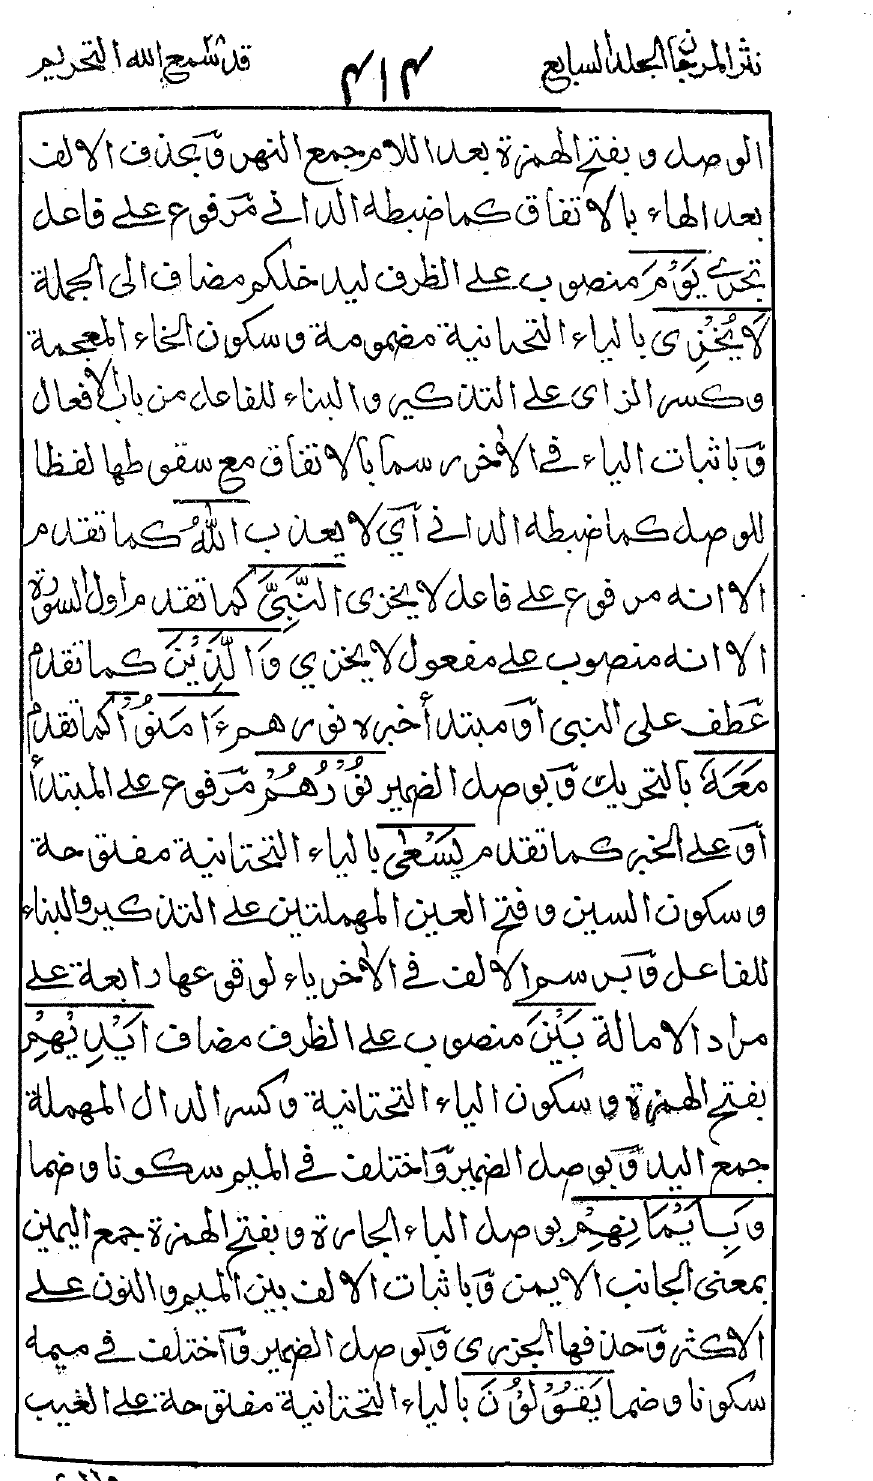 نثر المرجان الجلد السابع
٤١٤
قد سمع الله التحريم
الوصل و بفتح الهمزة بعد اللام جمع النهر وَ بحذف الالف
بعد الهاء بالاتفاق كما ضبطه الدانى مرفوع على فاعل
تجرى يَوْمَ منصوب على الظرف ليدخلكم مضاف الى الجملة
لَا يُخْزِى بالياء التحتانية مضمومة و سكون الخاء المعجمة
و كسر الزاى على التذكير و البناء للفاعل من باب الافعال
وَ باثبات الياء فى الآخر رسما بالاتفاق مع سقوطها لفظا
للوصل كما ضبطه الدانى آي لا يعذب اللهُ كما تقدم
الا انه مرفوع على فاعل لا يخزى النَّبِيَّ كما تقدم اول السورة
الا انه منصوب على مفعول لا يخزي وَالَّذِيْنَ كما تقدم
عطف على النبى اوَ مبتدأ خبره نورهم ءَامَنُوْا كما تقدم
مَعَهٗ بالتحريك وَ بوصل الضمير نُوْرُهُمْ مرفوع على المبتدأ
اوَ على الخبر كما تقدم يَسْعٰى بالياء التحتانية مفتوحة
و سكون السين و فتح العين المهملتين على التذكير والبناء
للفاعل وَ برسم الالف فى الآخر ياء لوقوعها رابعة على
مراد الامالة بَيْنَ منصوب على الظرف مضاف اَيْدِيْهِمْ
بفتح الهمزة و سكون الياء التحتانية و كسر الدال المهملة
جمع اليد وَ بوصل الضمير وَاختلف فى الميم سكونا و ضما
وَبِاَيْمَانِهِمْ بوصل الباء الجارة و بفتح الهمزة جمع اليمين
بمعنى الجانب الايمن وَ باثبات الالف بين الميم و النون على
الاكثر وَ حذفها الجزرى وَ بوصل الضمير وَ اختلف فى ميمه
سكونا و ضما يَقُوْلُوْنَ بالياء التحتانية مفتوحة على الغيب